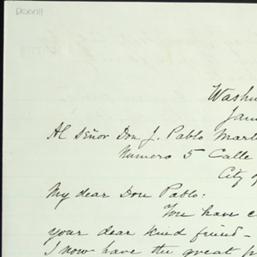 Washin
Jan
Al Señor Don J. Pablo Mart
Numero 5 Calle
City of
My dear Don Pablo:
We have c
your dear kind friend-
I now have the great p